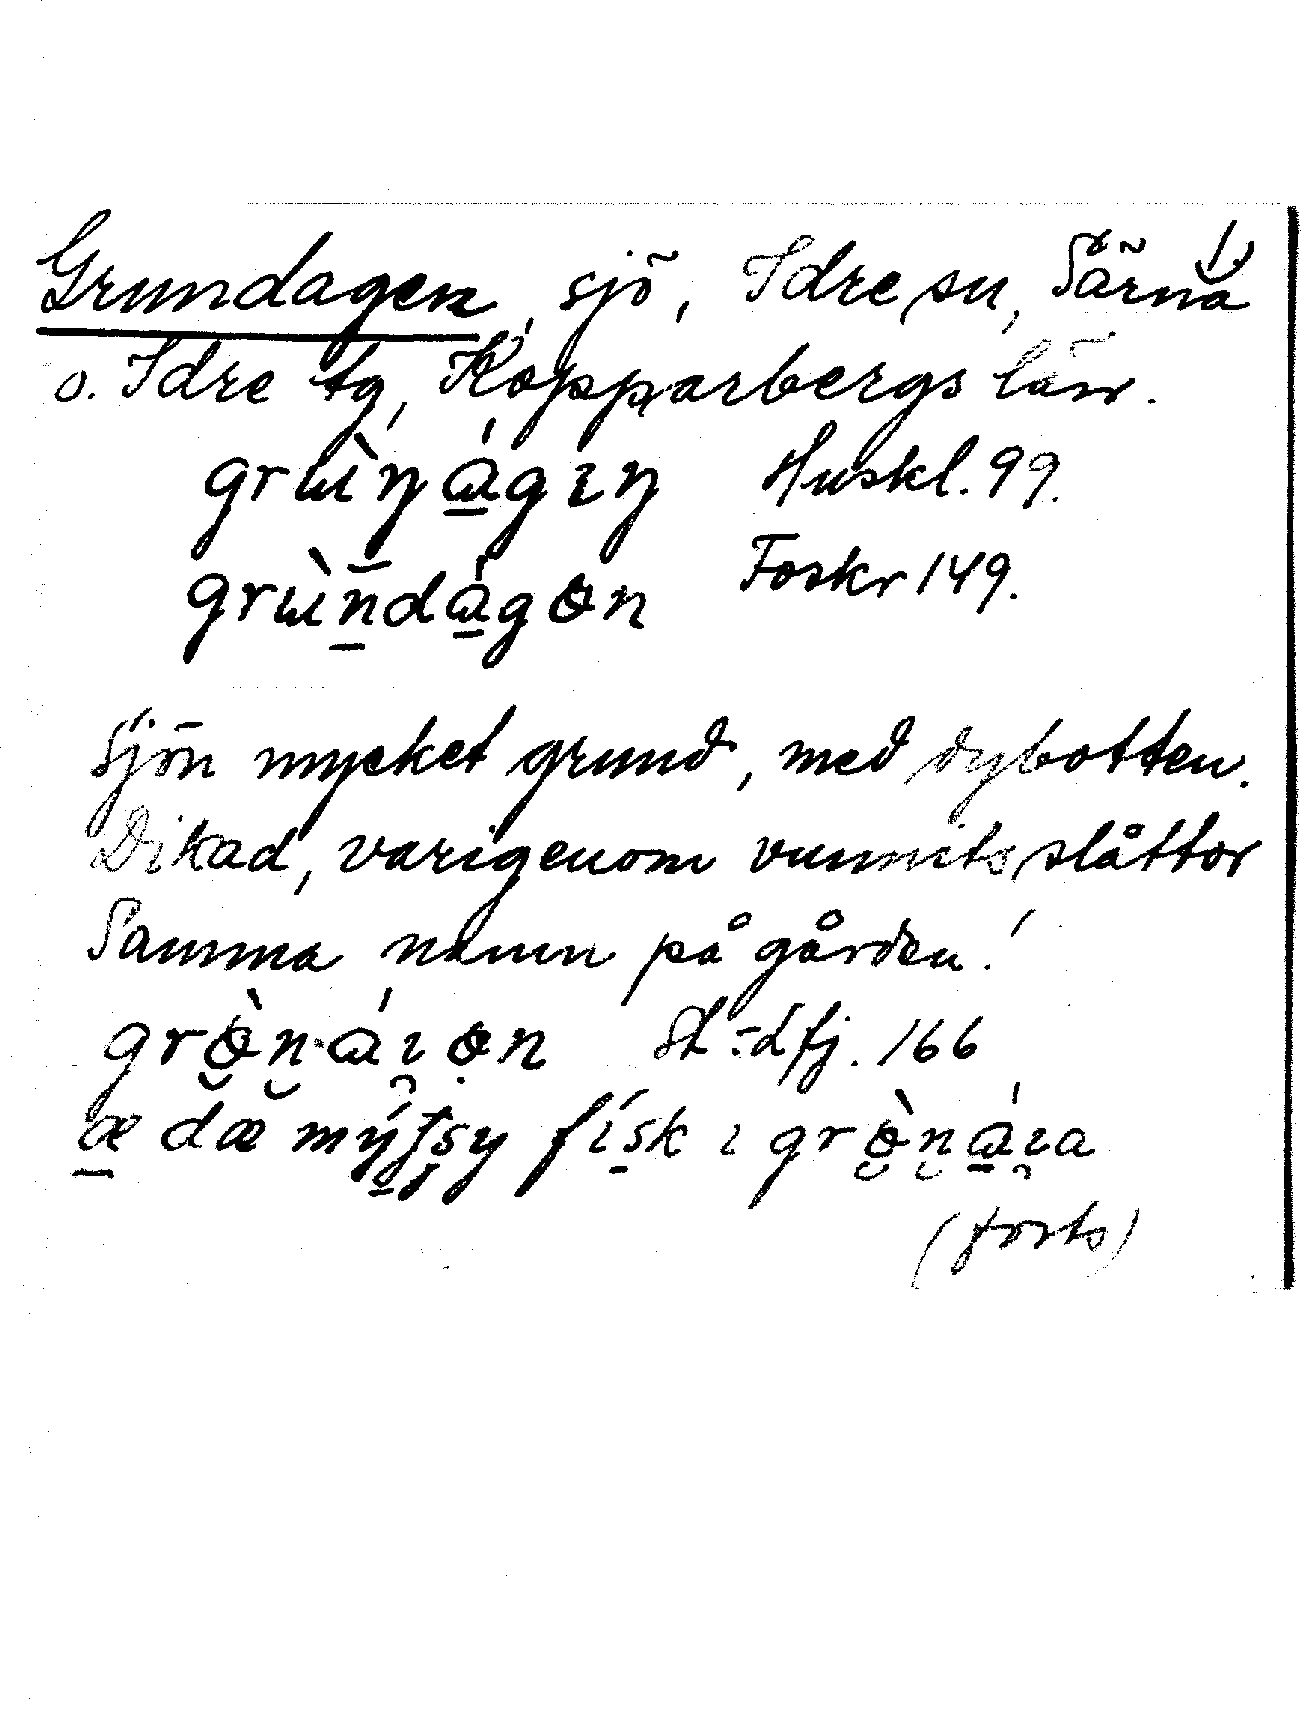 Grundagen, sjö, Idre sn, Särna
o. Idre tg, Kopparbergs län.
grɯ̀ŋág̱ıŋ Huskl. 99.
grɯ̀ndágɵn Foskr 149.
Sjön mycket grund, med dybotten.
Dikad, varigenom vunnits slåttor
Samma namn på gården!
grɵ̀náıɵn St:dfj. 166
æ dæ físk ı grɵ̀náıa
(forts)